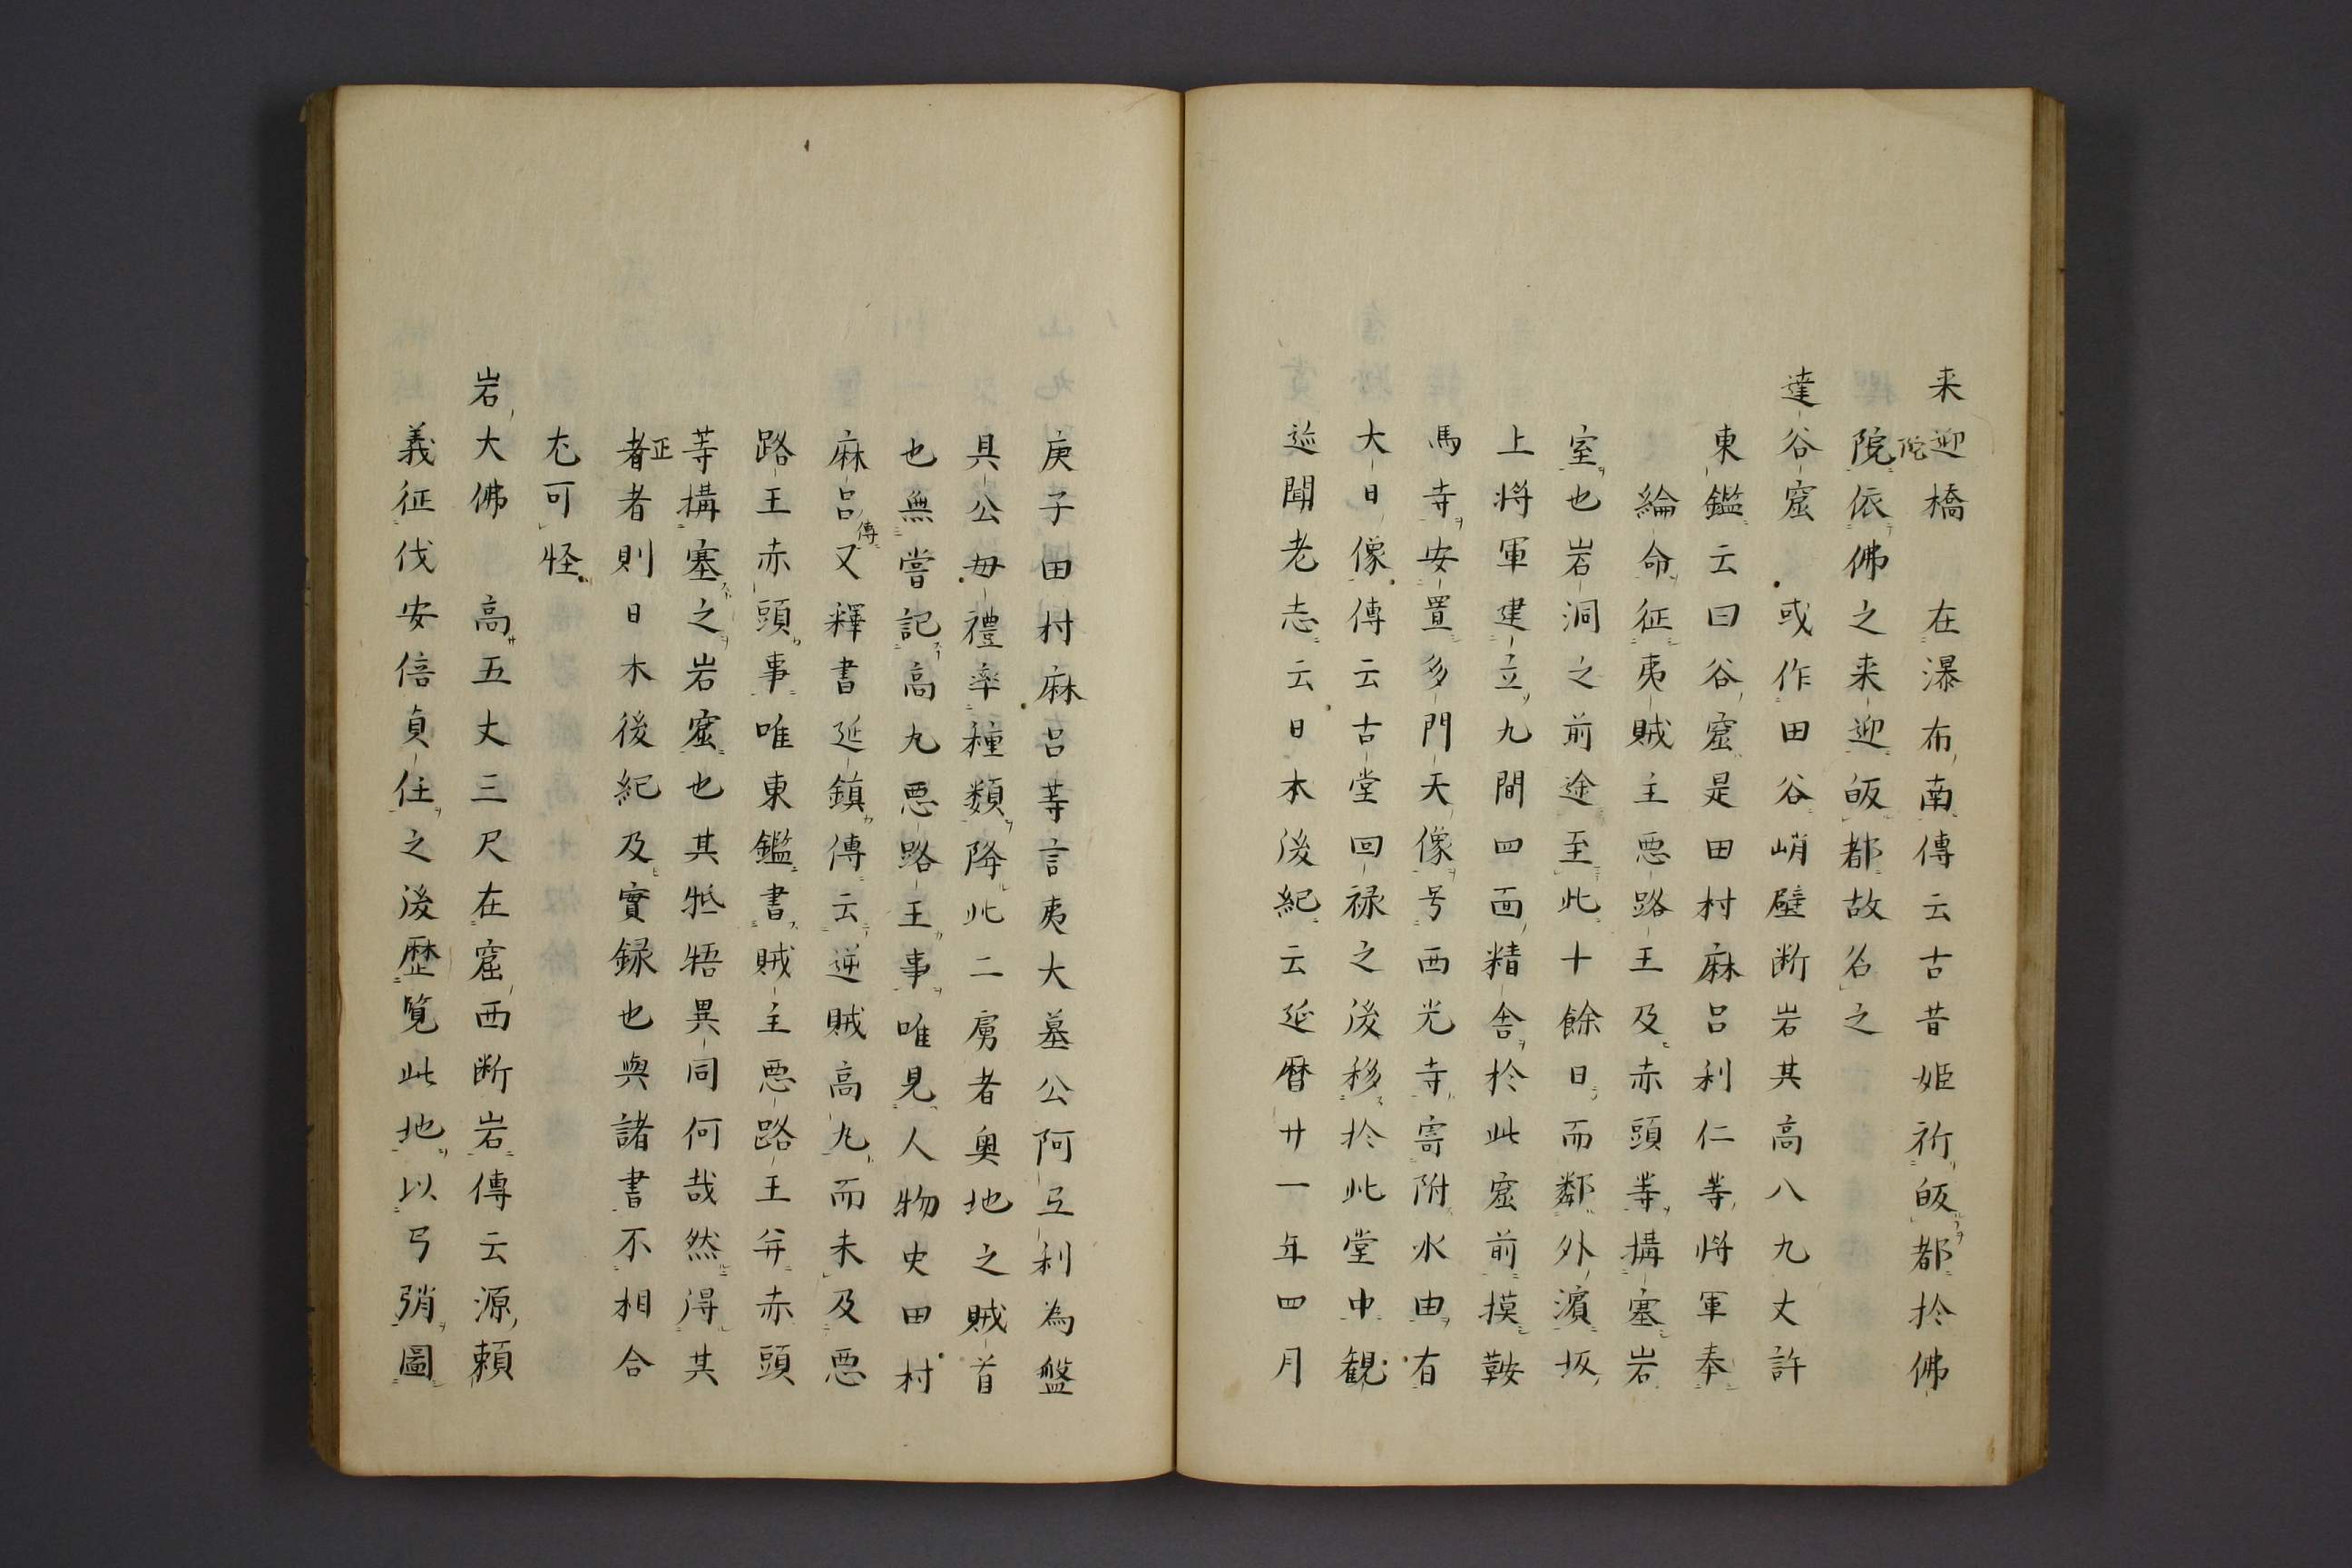 来迎橋　在瀑布南傳云古昔姫祈皈都於佛
陀
院依佛之来迎皈都故名之
達谷窟　或作田谷峭壁断岩其高八九丈許
東鑑云曰谷窟是田村麻呂利仁等将軍奉
綸命征夷賊主悪路王及赤頭等搆塞岩
室也岩洞之前途至此十餘日而鄰外濱坂
上将軍建立九間四面精舎於此窟前摸鞍
馬寺安置多門天像号西光寺寄附水由有
大日像傳云古堂回禄之後移於此堂中観
迹聞老志云日本後紀云延暦廿一年四月
庚子田村麻呂等言夷大墓公阿弖利為盤
具公毋禮率種類降此二虜者奥地之賊首
也無嘗記高丸悪路王事唯見人物史田村
麻呂傳又釋書延鎮傳云逆賊高丸而未及悪
路王赤頭事唯東鑑書賊主悪路王并赤頭
等搆塞之岩窟也其牴牾異同何哉然得其
正
者者則日木後紀及實録也與諸書不相合
尤可怪
岩大佛　高五丈三尺在窟西断岩傳云源頼
義征伐安倍貞任之後歴覧此地以弓弰圖